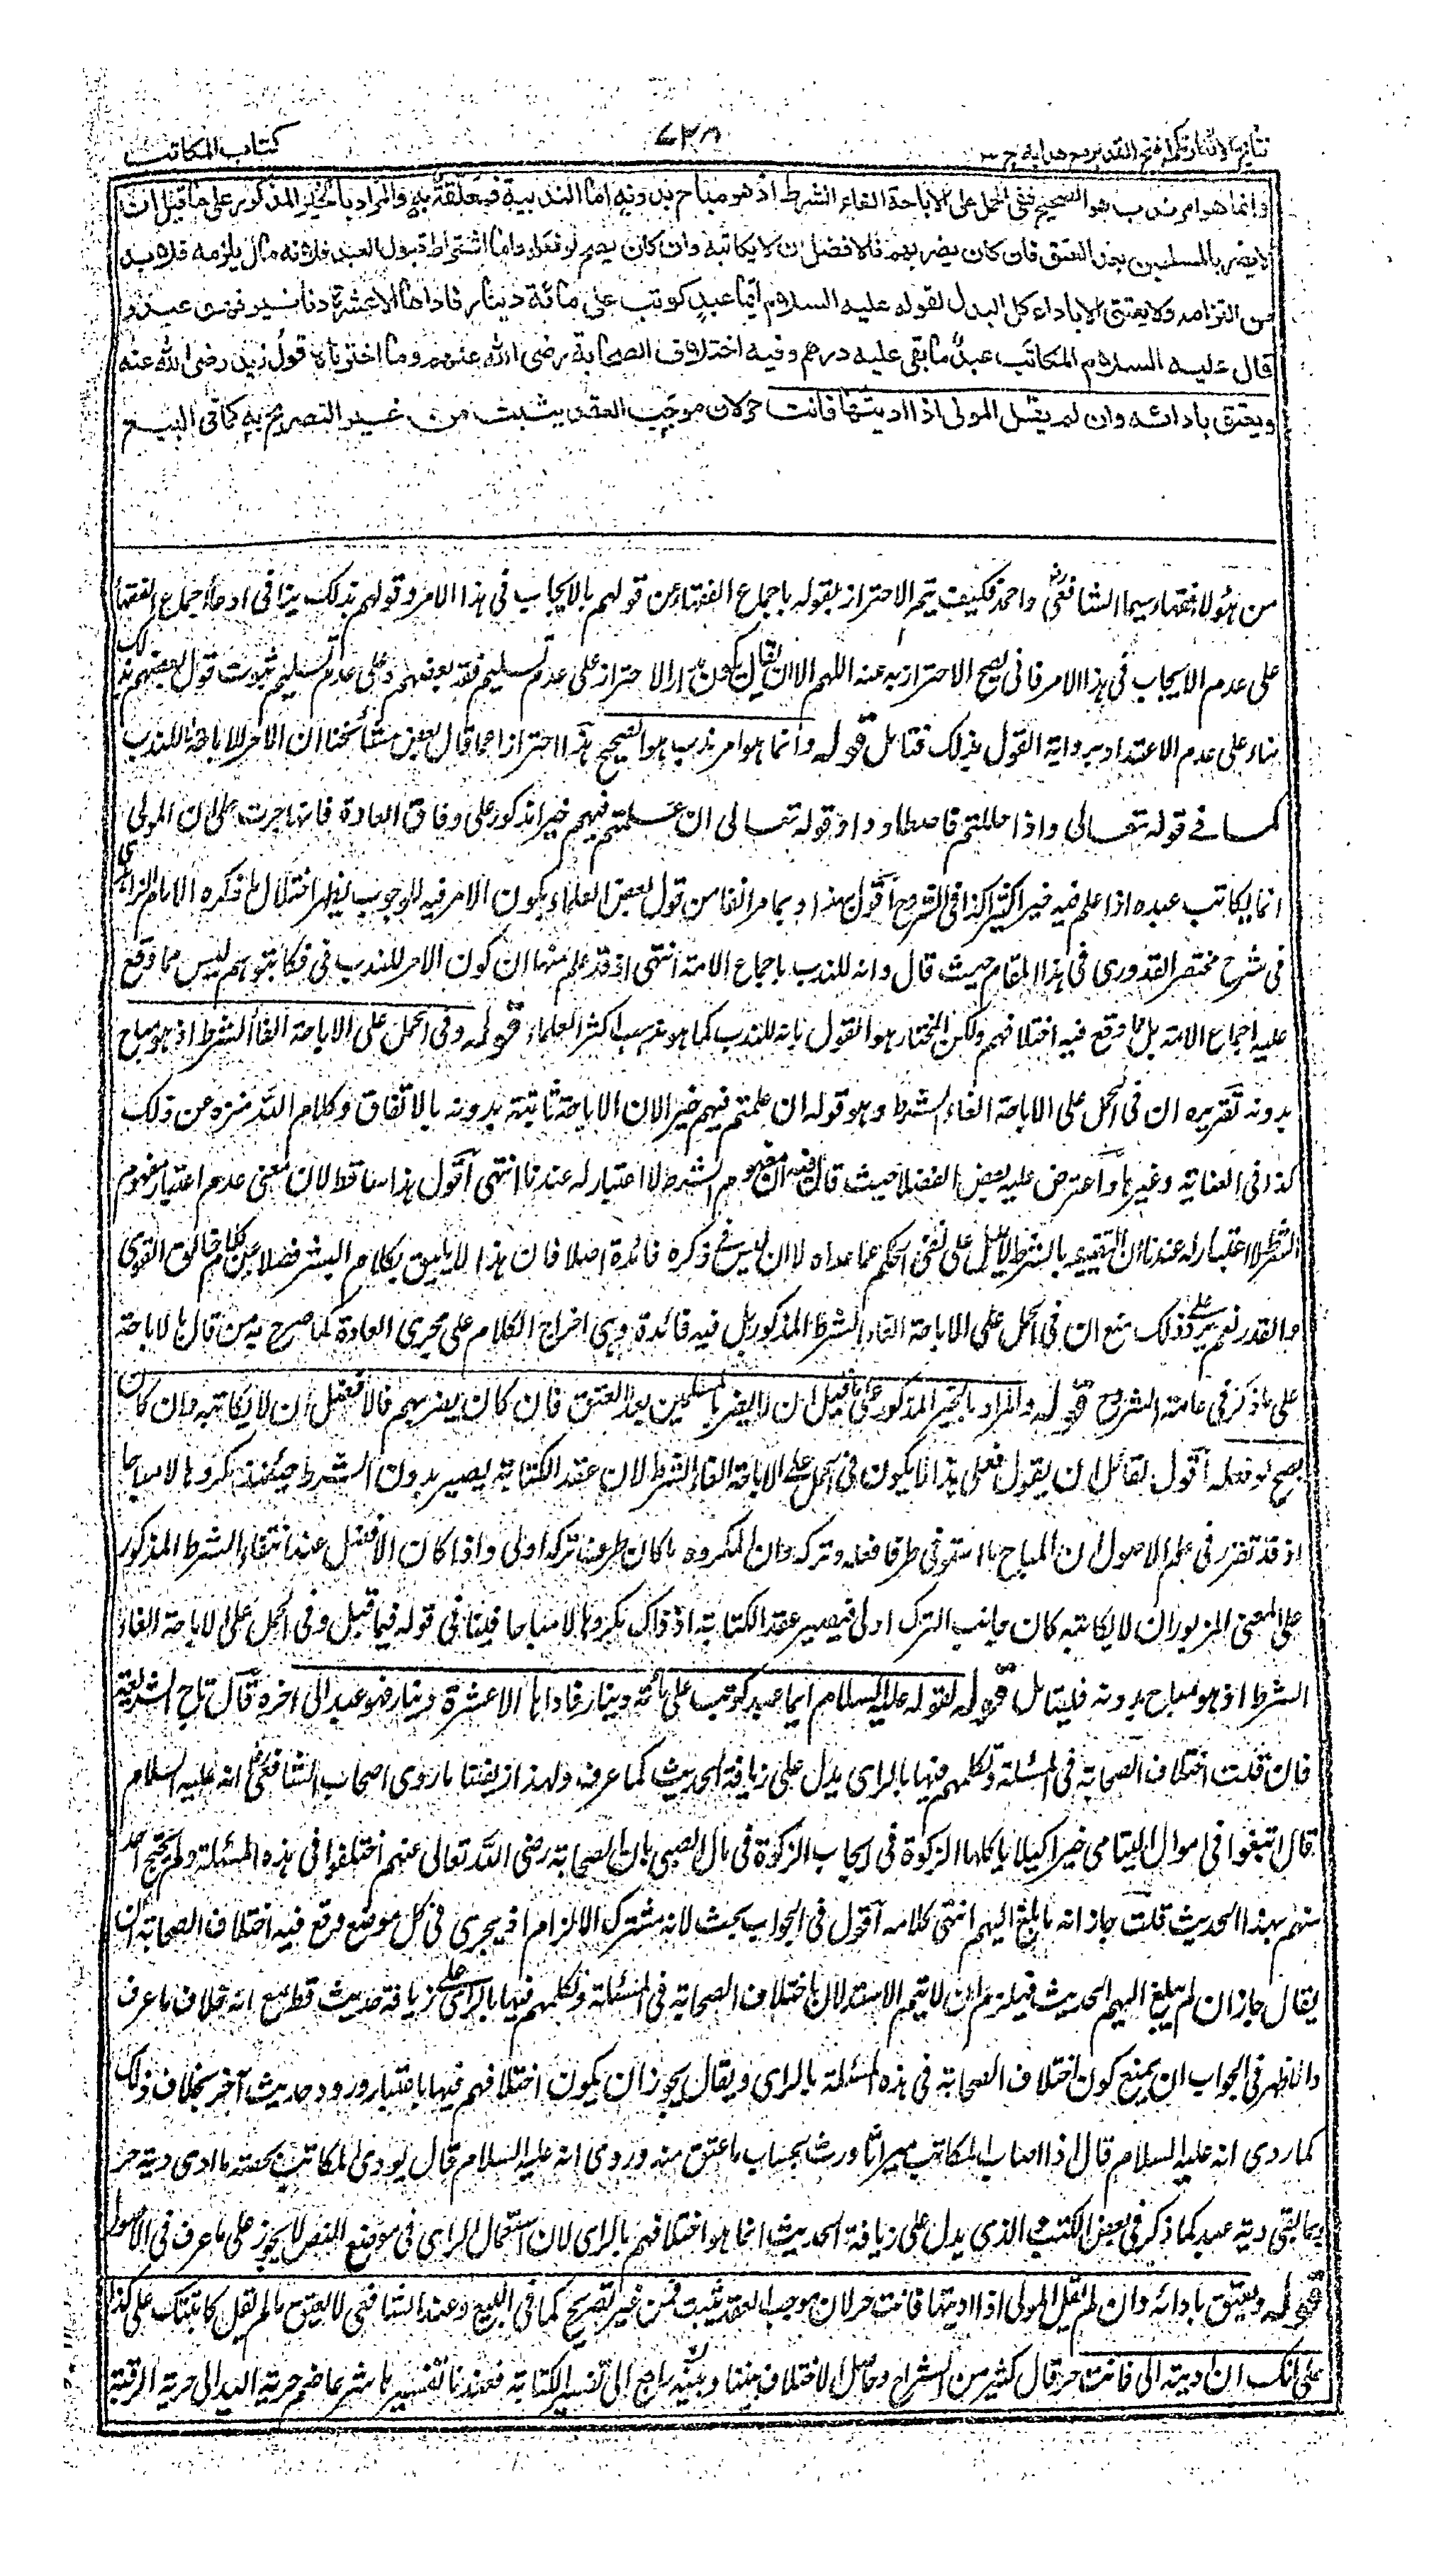 نتائج الافكار تكملة فتح القدير مع هدايه ج ٣
٧٣٨
كتاب المكاتب
وانما هو امر ندب هو الصحيح ففى الحمل على الاباحة الغاء الشرط اذ هو مباح بدونه اما الندبية فمعلقة به والمراد بالخير المذكور على ما قيل ان
لا يضر بالمسلمين بعد العتق فان كان يضر بهم فالافضل ان لا يكاتبه وان كان يصح لو فعله واما اشتراط قبول العبد فلانه مال يلزمه فلا بد
من التزامه ولا يعتق الا باداء كل البدل لقوله عليه السلام ايما عبد كوتب على مائة دينار فاداها الا عشرة دنانير فهو عبد و
قال عليه السلام المكاتب عبد ما بقى عليه درهم وفيه اختلاف الصحابة رضى الله عنهم وما اخترناه قول زيد رضى الله عنه
ويعتق بادائه وان لم يقل المولى اذا اديتها فانت حر لان موجب العقد يثبت من غير التصريح به كما فى البيع
من هؤلاء فقهاء سيما الشافعى واحمد فكيف يتم الاحتراز بقوله باجماع الفقهاء عن قولهم بالايجاب فى هذا الامر وقولهم بذلك ينافى ادعاء اجماع الفقهاء
على عدم الايجاب فى هذا الامر فانى يصح الاحتراز به عنه اللهم الا ان يقال يكون مدار الاحتراز على عدم تسليم فقه بعضهم وعلى عدم تسليم ثبوت قول بعضهم بذلك
بناء على عدم الاعتداد برواية القول بذلك فتامل قوله وانما هو امر ندب هو الصحيح هذا احتراز عما قال بعض مشائخنا ان الامر للاباحة لا للندب
كما فى قوله تعالى واذا حللتم فاصطادوا وقوله تعالى ان علمتم فيهم خيرا مذكور على وفاق العادة فانها جرت على ان المولى
انما يكاتب عبده اذا علم فيه خيرا كثيرا كذا فى الشروح اقول بهذا وبما مر انفا من قول بعض العلماء بكون الامر فيه للوجوب يظهر اختلال ما ذكره الامام الزاهدى
فى شرح مختصر القدورى فى هذا المقام حيث قال وانه للندب باجماع الامة انتهى اذ قد علم منهما ان كون الامر للندب فى فكاتبوهم ليس مما وقع
عليه اجماع الامة بل مما وقع فيه اختلافهم ولكن المختار هو القول بانه للندب كما هو مذهب اكثر العلماء قوله وفى الحمل على الاباحة الغاء الشرط اذ هو مباح
بدونه تقريره ان فى الحمل على الاباحة الغاء الشرط وهو قوله ان علمتم فيهم خيرا لان الاباحة ثابتة بدونه بالاتفاق وكلام الله منزه عن ذلك
كذا فى العناية وغيرها واعترض عليه بعض الفضلاء حيث قال فيه ان مفهوم الشرط لا اعتبار له عندنا انتهى اقول هذا ساقط لان معنى عدم اعتبار مفهوم
الشرط لا اعتبار له عندنا ان التقييد بالشرط لا يدل على نفى الحكم عما عداه لا ان ليس فى ذكره فائدة اصلا فان هذا لا يليق بكلام البشر فضلا عن كلام خالق القوى
والقدر نعم يرد على ذلك منع ان فى الحمل على الاباحة الغاء الشرط المذكور بل فيه فائدة وهى اخراج الكلام على مجرى العادة كما صرح به من قال بالاباحة
على ما ذكر فى عامة الشروح قوله والمراد بالخير المذكور على ما قيل ان لا يضر بالمسلمين بعد العتق فان كان يضر بهم فالافضل ان لا يكاتبه وان كان
يصح لو فعله اقول لقائل ان يقول فعلى هذا لا يكون فى الحمل على الاباحة الغاء الشرط لان عقد الكتابة يصير بدون الشرط حينئذ مكروها لا مباحا
اذ قد تقرر فى علم الاصول ان المباح ما استوى طرفا فعله وتركه وان المكروه ما كان طرف تركه اولى واذا كان الافضل عند انتفاء الشرط المذكور
على المعنى المزبور ان لا يكاتبه كان جانب الترك اولى فيصير عقد الكتابة اذ ذاك مكروها لا مباحا فينافى قوله فيما قبل وفى الحمل على الاباحة الغاء
الشرط اذ هو مباح بدونه فليتامل قوله لقوله عليه السلام ايما عبد كوتب على مائة دينار فاداها الا عشرة دينار فهو عبد الى اخره قال تاج الشريعة
فان قلت اختلاف الصحابة فى المسئلة وتكلمهم فيها بالراى يدل على زيافة الحديث كما عرف ولهذا زيفنا ما روى اصحاب الشافعى انه عليه السلام
قال ابتغوا فى اموال اليتامى خيرا كيلا ياكلها الزكوة فى ايجاب الزكوة فى مال الصبى بان الصحابة رضى الله تعالى عنهم اختلفوا فى هذه المسئلة ولم يحتج احد
منهم بهذا الحديث قلت جاز انه ما بلغ اليهم انتهى كلامه اقول فى الجواب بحث لانه مشترك الالزام اذ يجرى فى كل موضع وقع فيه اختلاف الصحابة ان
يقال جاز ان لم يبلغ اليهم الحديث فيلزم ان لا يتم الاستدلال باختلاف الصحابة فى المسئلة وتكلمهم فيها بالراى على زيافة حديث قط مع انه خلاف ما عرف
والاظهر فى الجواب ان يمنع كون اختلاف الصحابة فى هذه المسئلة بالراى ويقال يجوز ان يكون اختلافهم فيها باعتبار ورود حديث آخر بخلاف ذلك
كما روى انه عليه السلام قال اذا اصاب المكاتب ميراثا ورث بحساب ما عتق منه وروى انه عليه السلام قال يودى المكاتب بحصة ما ادى دية حر
وما بقى دية عبد كما ذكر فى بعض الكتب والذى يدل على زيافة الحديث انما هو اختلافهم بالراى لان استعمال الراى فى موضع النص لا يجوز على ما عرف فى الاصول
قوله ويعتق بادائه وان لم يقل المولى اذا اديتها فانت حر لان موجب العقد يثبت من غير تصريح كما فى البيع وعند الشافعى لا يعتق ما لم يقل كاتبتك على كذا
على انك ان اديته الى فانت حر قال كثير من الشراح وحاصل الاختلاف بيننا وبينه راجع الى تفسير الكتابة فعندنا تفسيرها شرعا ضم حرية اليد الى حرية الرقبة